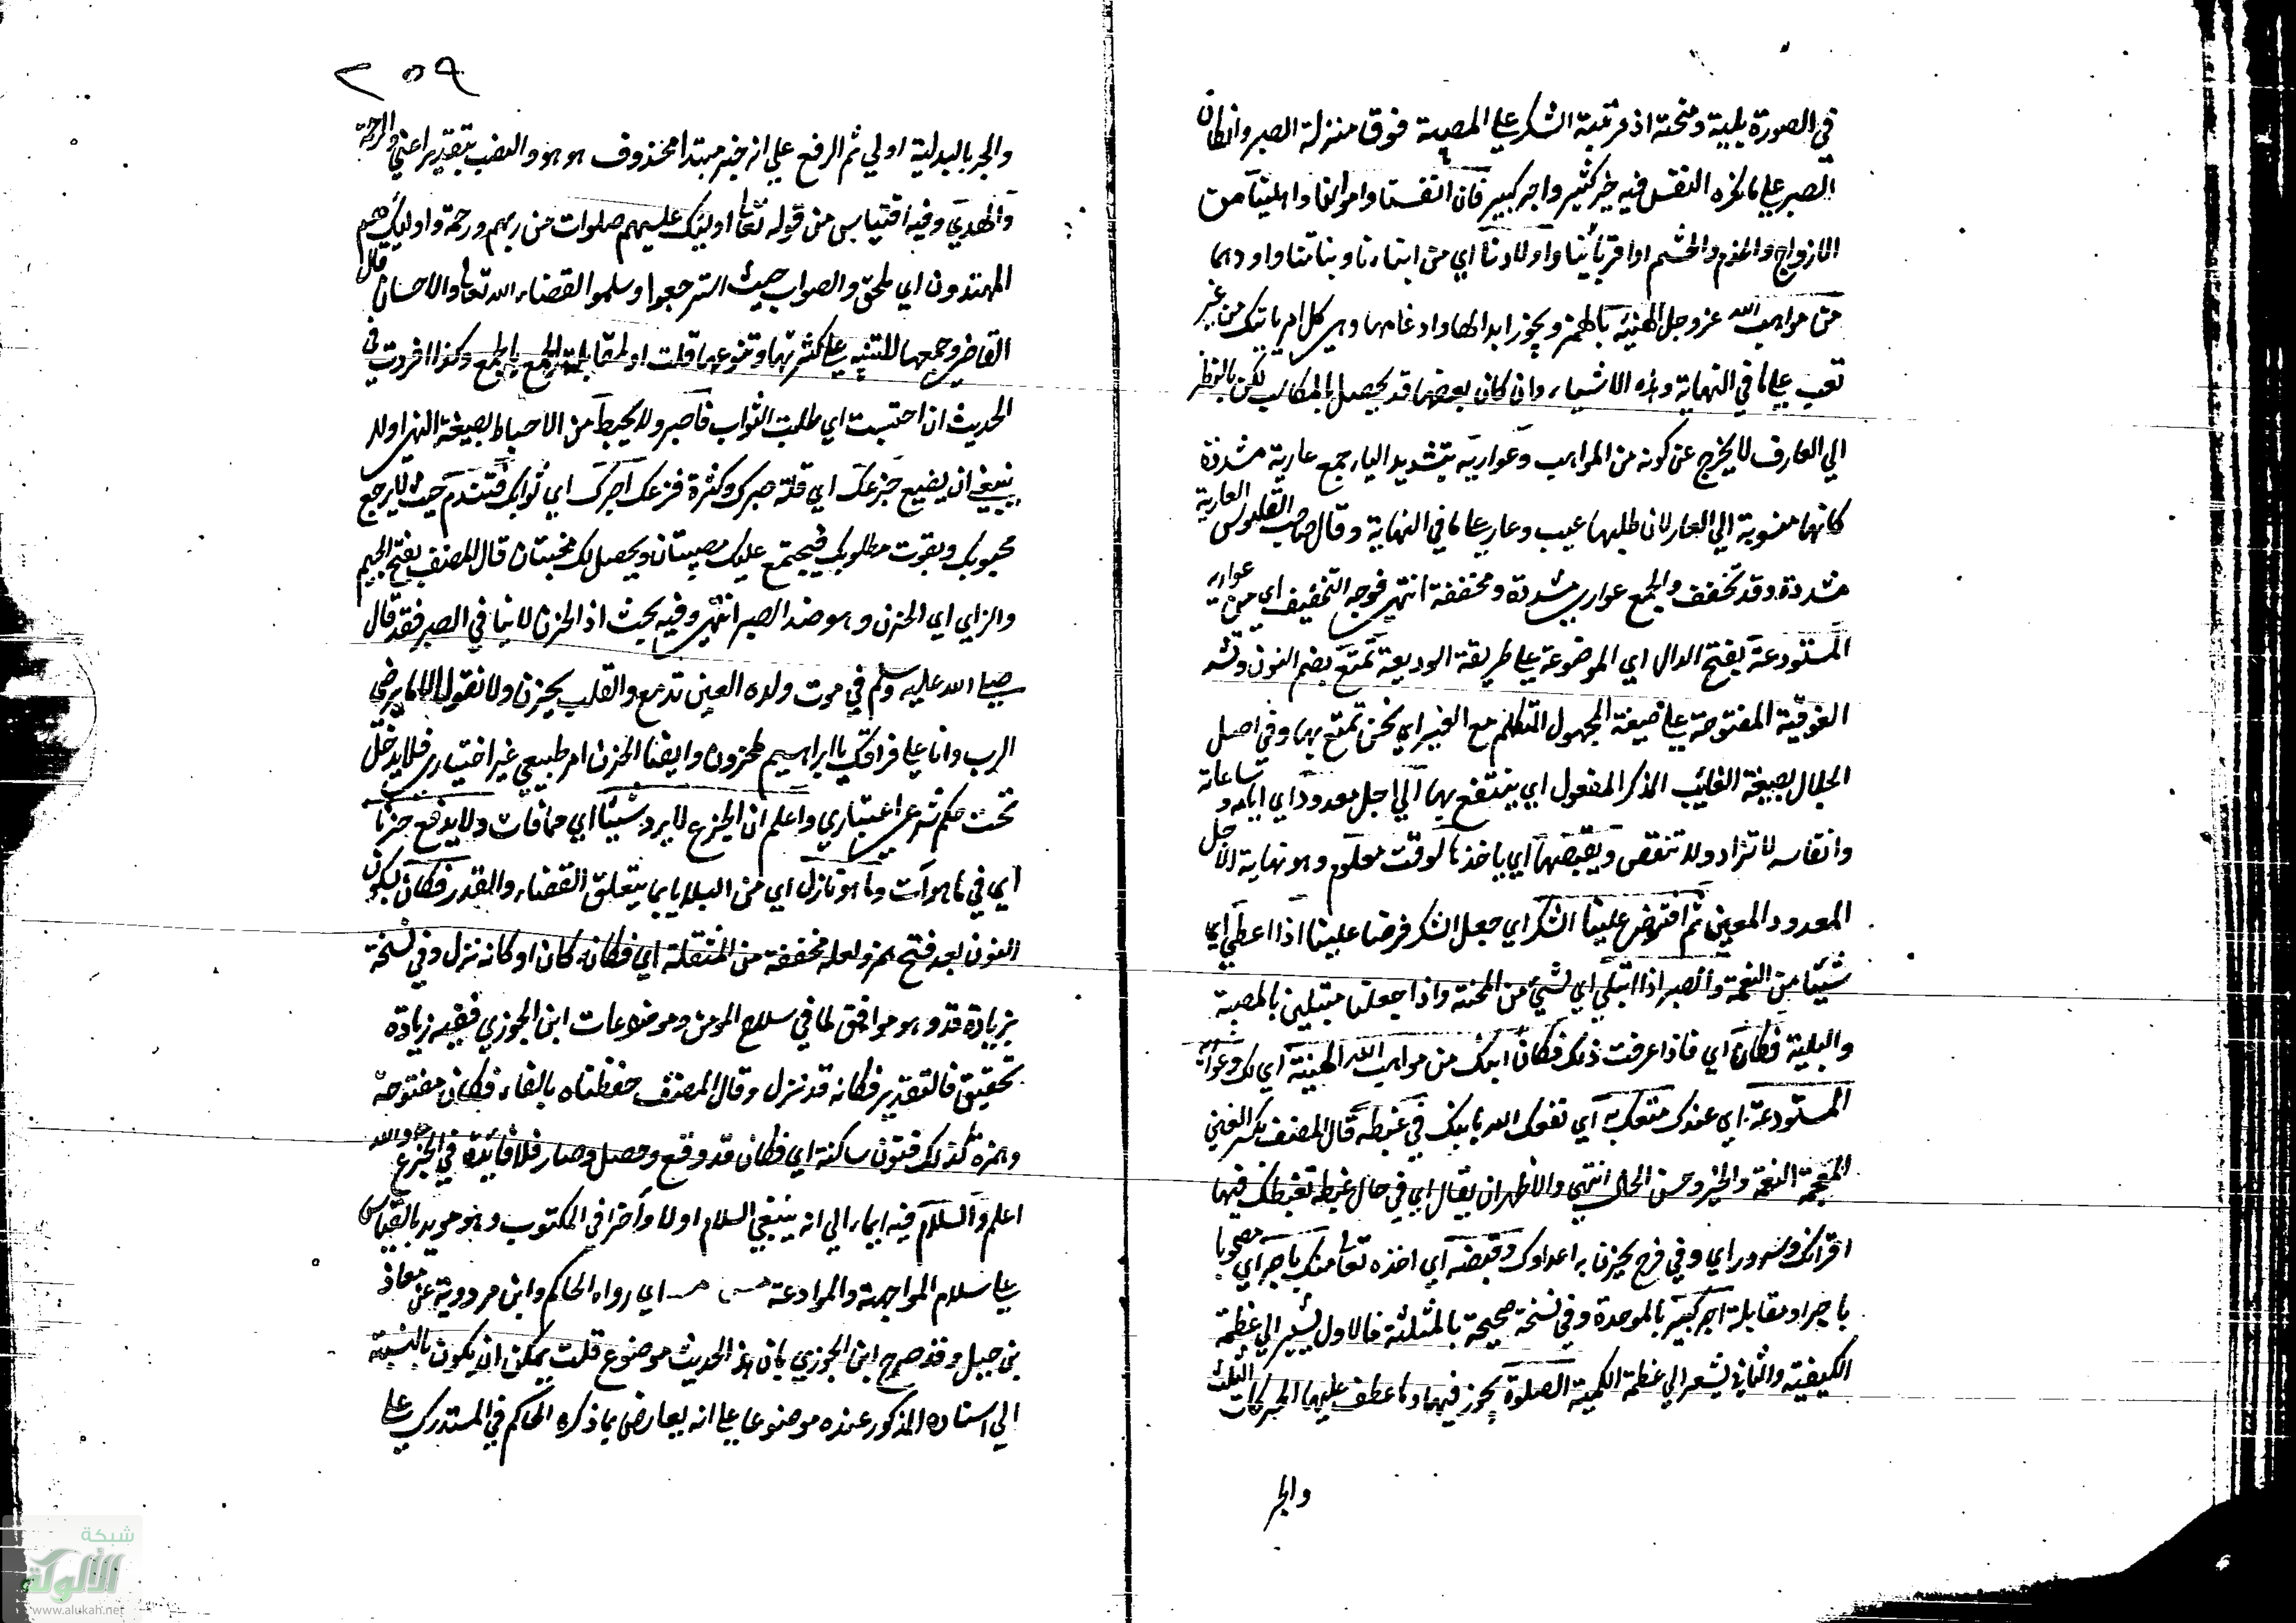 في الصورة بلية ومنحة اذ مرتبة الشكر علي المصيبة فوق منزلة الصبر وان كان
الصبر علي ما تكره النفس فيه خير كثير واجر كبير فان انفسنا واموالنا واهلينا من
الازواج والخدم والحشم او اقربائنا واولادنا اي من ابنائنا وبناتنا واولادهما
من مواهب الله عز وجل الهنيئة بالهمز ويجوز ابدالها وادغامها وهي كل امر ياتيك من غير
تعب علي ما في النهاية وهذه الاشياء وان كان بعضها قد يحصل بالمكاسب لكن بالنظر
الي العارف لا يخرج عن كونه من المواهب وعواريه بتشديد الياء جمع عارية مشددة
كانها منسوبة الي العار لان طلبها عيب وعار علي ما في النهاية وقال صاحب القاموس العارية
مشددة وقد تخفف والجمع عواري مشددة ومخففة انتهي فوجه التخفيف اي من عواريه
المستودعة بفتح الدال اي الموضوعة علي طريقة الوديعة نمتع بضم النون وتشد
الفوقية المفتوحة علي صيغة المجهول المتكلم مع الغير اي نحن نمتع بها وفي اصل
الجلال بصيغة الغائب المذكر المفعول اي ينتفع بها الي اجل معدود اي ايامه وساعاته
وانفاسه لا تزاد ولا تنقص ويقبضها اي ياخذها لوقت معلوم وهو نهاية الاجل
المعدود المعين ثم افترض علينا الشكر اي جعل الشكر فرضا علينا اذا اعطي اي
شيئا من النعمة والصبر اذا ابتلي اي بشيء من المحنة واذا جعلنا مبتلين بالمصيبة
والبلية فكان اي فاذا عرفت ذلك فكان ابنك من مواهب الله الهنيئة اي لك وعواريه
المستودعة اي عندك متعك به اي نفعك الله بابنك في غبطة قال المصنف بكسر الغين
المعجمة النعمة والخير وحسن الحال انتهي والاظهر ان يقال اي في حال غبطة تغبطك فيها
اقرانك وسرور اي وفي فرح يحزن به اعداوك وقبضه اي اخذه تعالي منك باجر اي مصحوبا
باجر او مقابلة اجر كبير بالموحدة وفي نسخة صحيحة بالمثلثة فالاول يشير الي عظمة
الكيفية والثاني يشعر الي عظمة الكمية الصلوة يجوز فيها وما عطف عليها الحركات الثلث
والجر
٢٥٩
والجر بالبدلية اولي ثم الرفع علي انه خبر مبتدا محذوف هو هو والنصب بتقدير اعني والرحمة
والهدي وفيه اقتباس من قوله تعالي اوليك عليهم صلوات من ربهم ورحمة واوليك هم
المهتدون اي للحق والصواب حيث استرجعوا وسلموا القضاء الله تعالي والاحسان قال
القاضي وجمعها للتنبيه علي كثرتها وتنوعها قلت او لمقابلة الجمع بالجمع وكذا افردت في
الحديث ان احتسبت اي طلبت الثواب فاصبر ولا يحبط من الاحباط بصيغة النهي اولا
ينبغي ان يضيع جزعك اي قلة صبرك وكثرة فزعك اجرك اي ثوابك فتندم حيث لا يرجع
محبوبك ويفوت مطلوبك فيجتمع عليك مصيبتان ويحصل لك محنتان قال المصنف بفتح الجيم
والزاي اي الحزن وهو ضد الصبر انتهي وفيه بحيث اذ الحزن لا ينافي الصبر فقد قال
صلي الله عليه وسلم في موت ولده العين تدمع والقلب يحزن ولا نقول الا ما يرضي
الرب وانا علي فراقك يا ابراهيم لمحزون وايضا الحزن امر طبيعي غير اختياري فلا يدخل
تحت حكم شرعي اعتباري واعلم ان الجزع لا يرد شيئا اي مما فات ولا يدفع حزنا
اي في ما هو آت وما هو نازل اي من البلايا بما يتعلق القضاء والقدر فكان بسكون
النون بعد فتح همز ولعله مخففة من المثقلة اي فكانه كان او كانه نزل وفي نسخة
بزيادة قد وهو موافق لما في سلاح المومن وموضوعات ابن الجوزي ففيه زيادة
تحقيق فالتقدير فكانه قد نزل وقال المصنف حفظناه بالفاء فكان مفتوحة
وهمزة كذلك فنون ساكنة اي فكان قد وقع وحصل وصار فلا فائدة في الجزع والله
اعلم والسلام فيه ايماء الي انه ينبغي السلام اولا واخرا في المكتوب وهو مويد بالقياس
علي سلام المواجهة والموادعة مس مر اي رواه الحاكم وابن مردوية عن معاذ
بن جبل وقد صرح ابن الجوزي بان هذا الحديث موضوع قلت يمكن ان يكون بالنسبة
الي اسناده المذكور عنده موضوعا علي انه يعارض بما ذكره الحاكم في المستدرك علي
شبكة
الألوكة
www.alukah.net